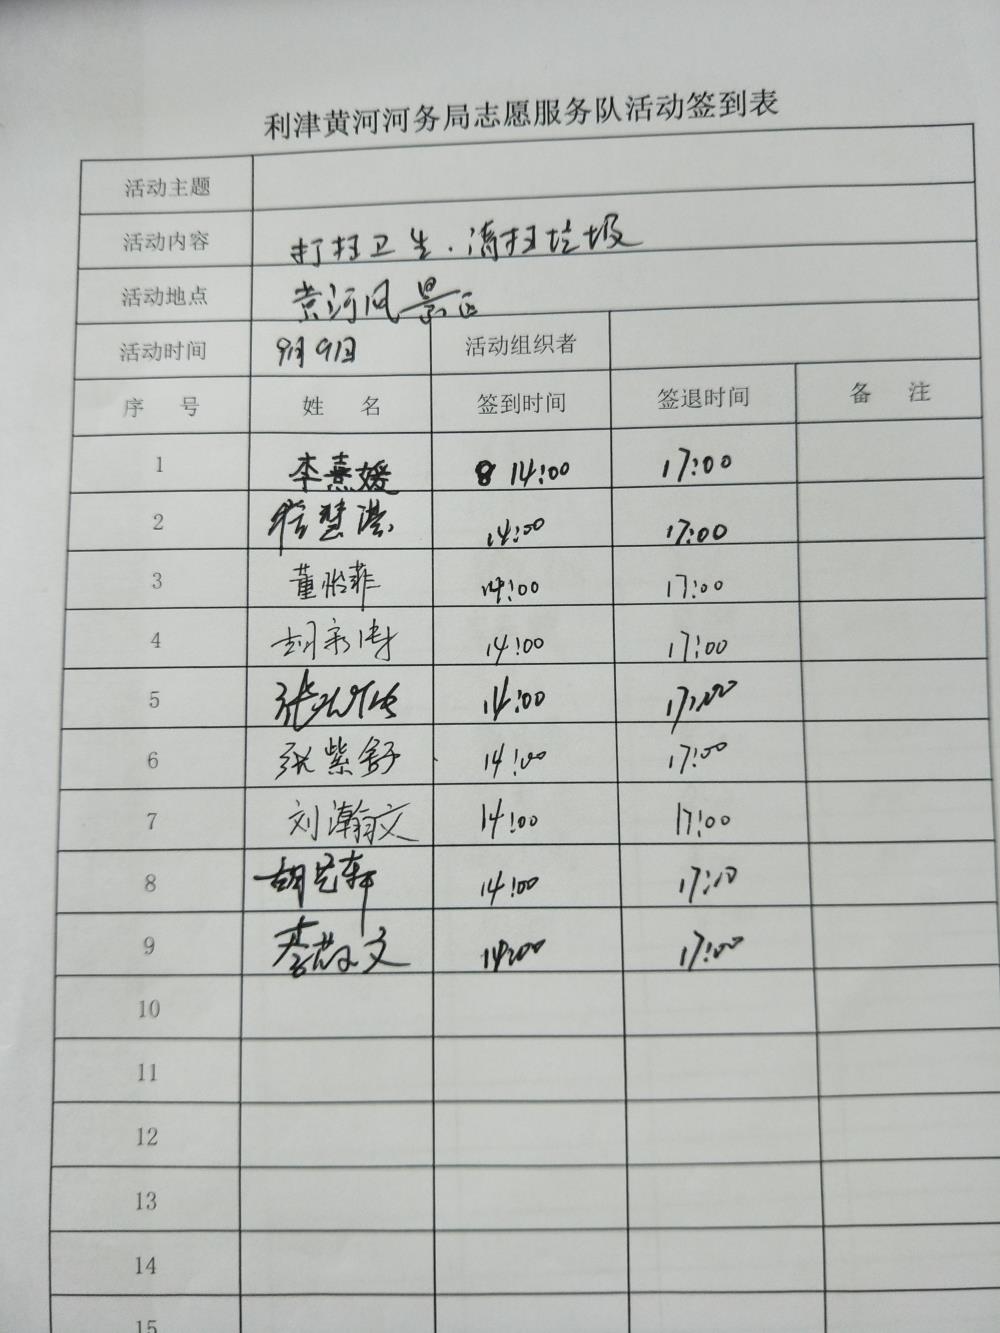 利津黄河河务局志愿服务队活动签到表
活动主题
活动内容 打扫卫生.清扫垃圾
活动地点 黄河风景区
活动时间 9月9日 活动组织者
序 号 姓 名 签到时间 签退时间 备 注
1 李熹媛 14:00 17:00
2 14:00 17:00
3 董怡菲 14:00 17:00
4 14:00 17:00
5 张 14:00 17:00
6 张紫舒 14:00 17:00
7 刘瀚文 14:00 17:00
8 胡 轩 14:00 17:10
9 李 文 14:00 17:00
10
11
12
13
14
15